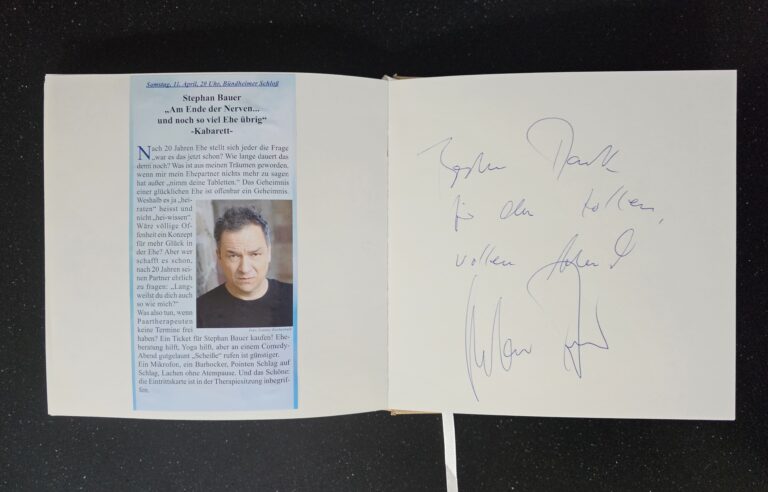 Samstag, 11. April, 20 Uhr, Bündheimer Schloß
Stephan Bauer
„Am Ende der Nerven...
und noch so viel Ehe übrig“
-Kabarett-
Nach 20 Jahren Ehe stellt sich jeder die Frage
„war es das jetzt schon? Wie lange dauert das
denn noch? Was ist aus meinen Träumen geworden,
wenn mir mein Ehepartner nichts mehr zu sagen
hat außer „nimm deine Tabletten.“ Das Geheimnis
einer glücklichen Ehe ist offenbar ein Geheimnis.
Weshalb es ja „hei-
raten“ heisst und
nicht „hei-wissen“.
Wäre völlige Of-
fenheit ein Konzept
für mehr Glück in
der Ehe? Aber wer
schafft es schon,
nach 20 Jahren sei-
nen Partner ehrlich
zu fragen: „Lang-
weilst du dich auch
so wie mich?“
Was also tun, wenn
Paartherapeuten
keine Termine frei
haben? Ein Ticket für Stephan Bauer kaufen! Ehe-
beratung hilft, Yoga hilft, aber an einem Comedy-
Abend gutgelaunt „Scheiße“ rufen ist günstiger.
Ein Mikrofon, ein Barhocker, Pointen Schlag auf
Schlag, Lachen ohne Atempause. Und das Schöne:
die Eintrittskarte ist in der Therapiesitzung inbegrif-
fen.
Dank
für den tollen,
vollen Abend